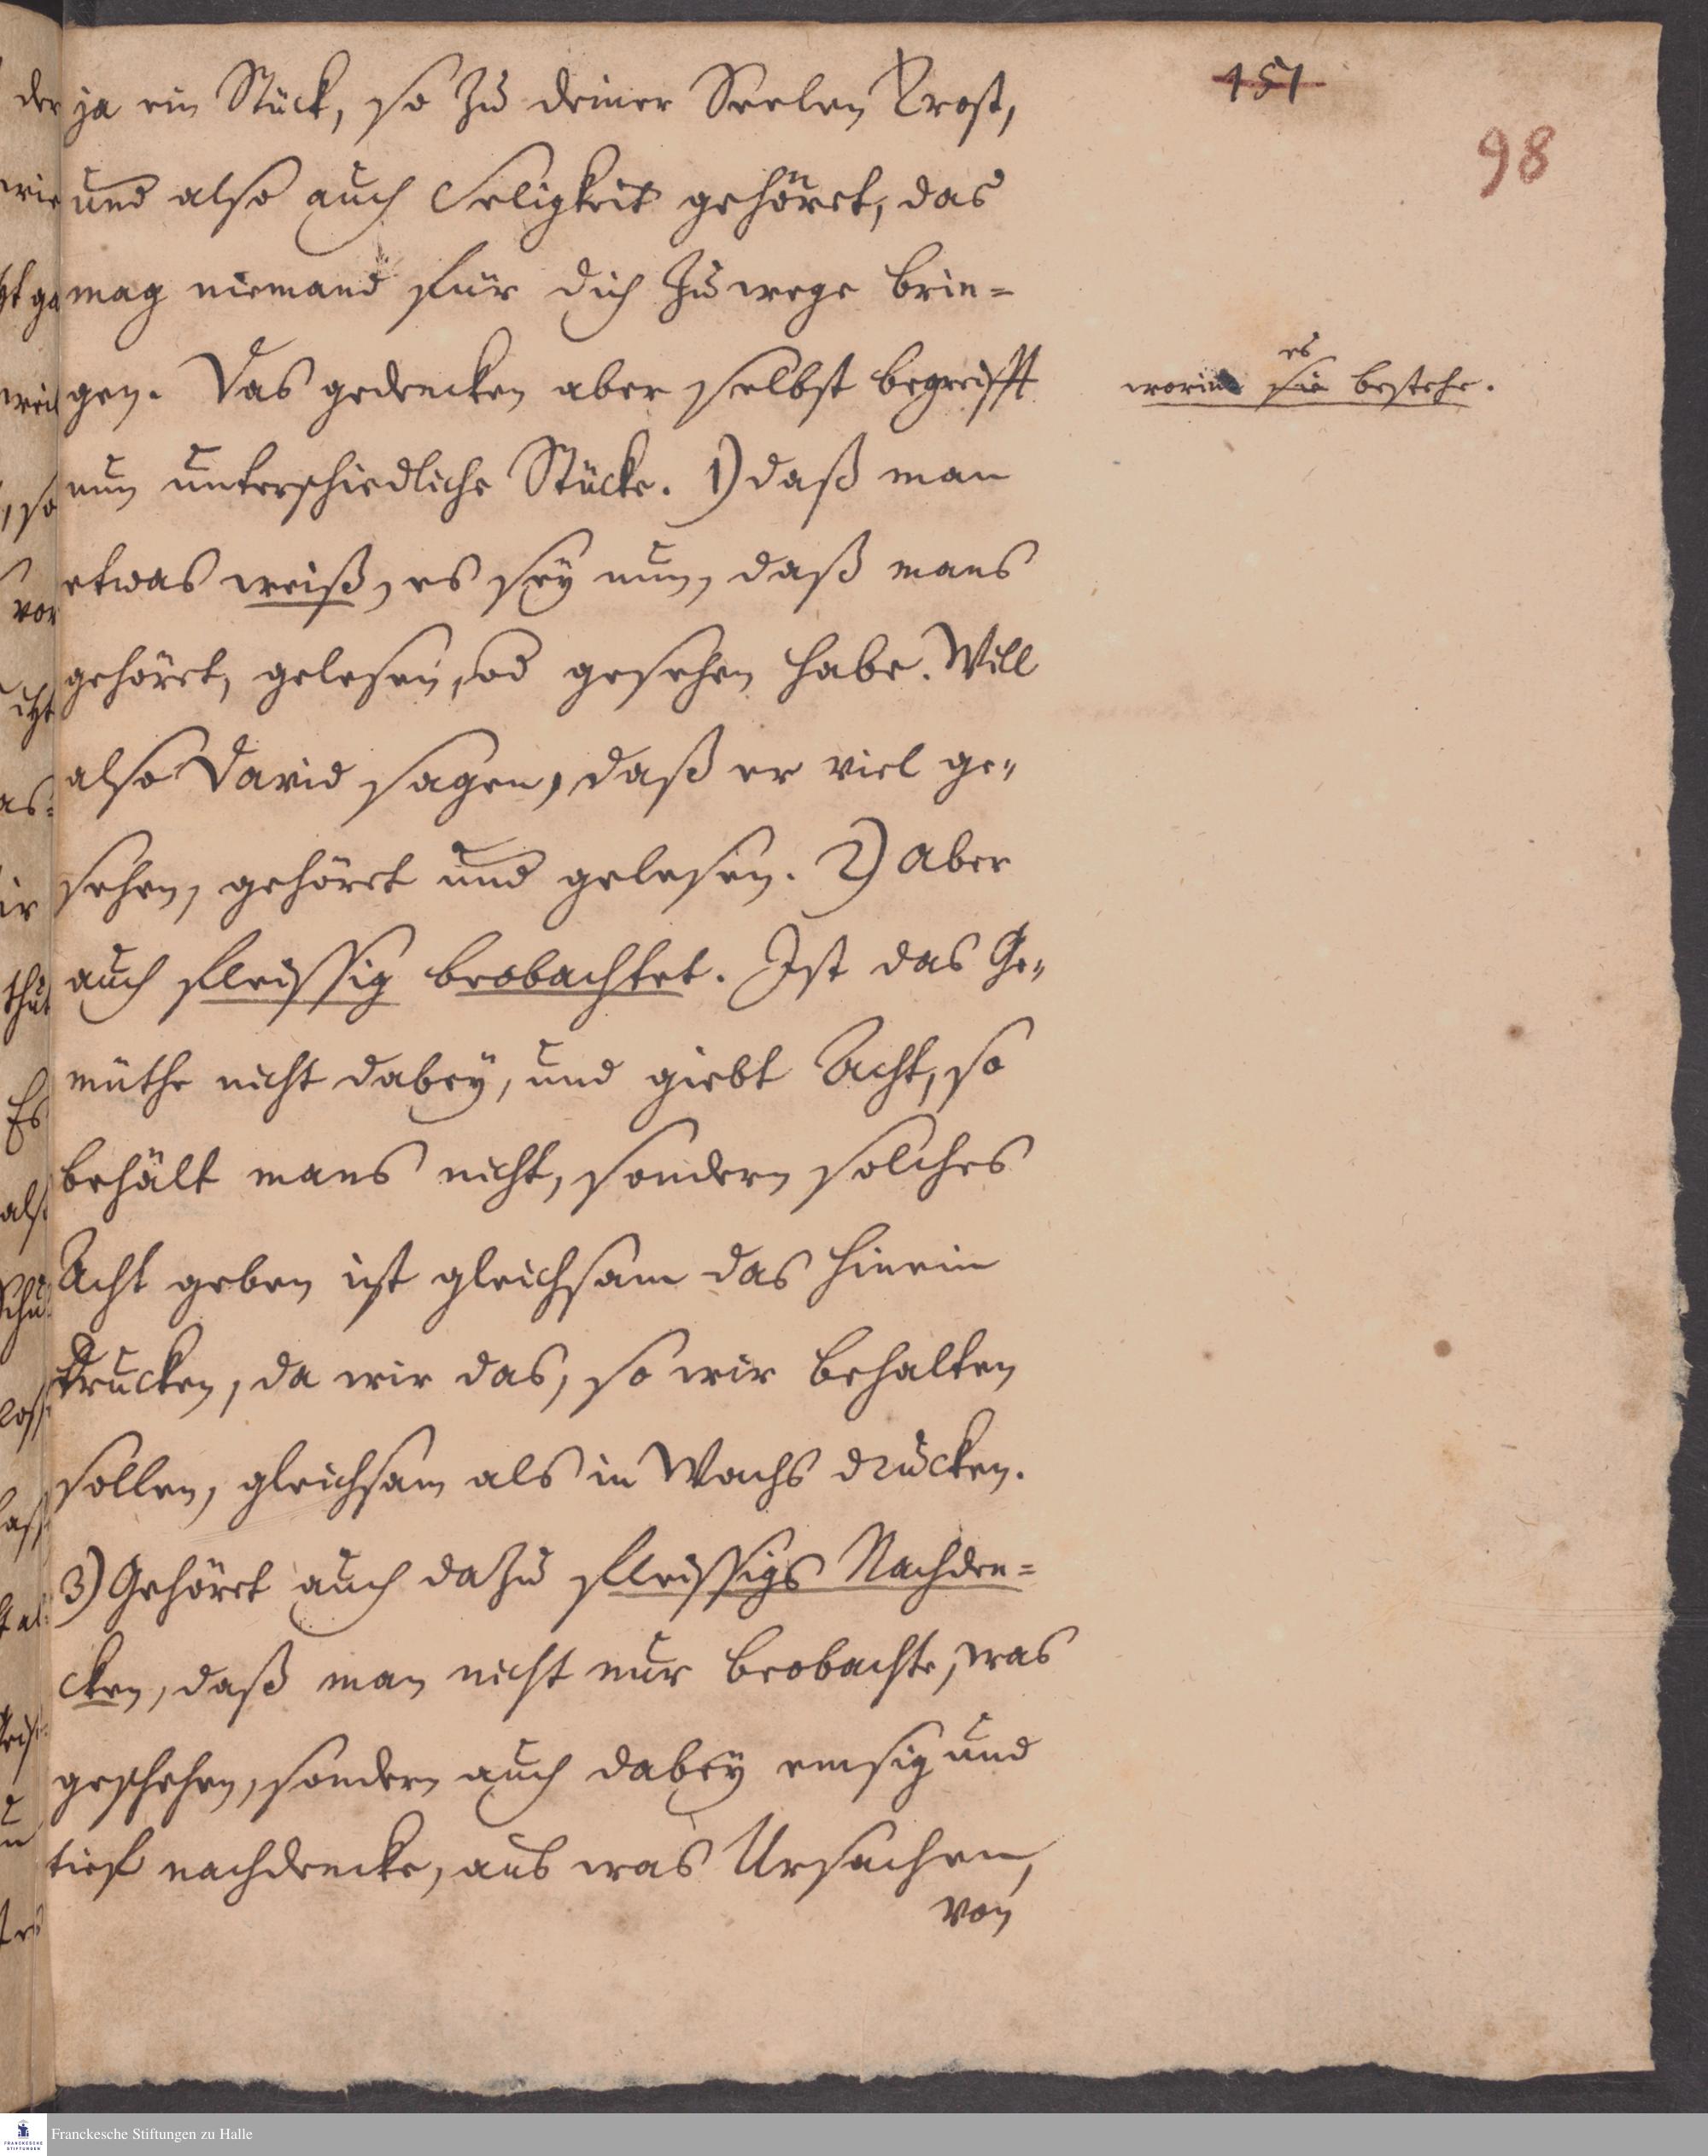 151
98
ja ein Stück, so zu deiner Seelen Trost,
und also auch Seligkeit gehöret, das
mag niemand für dich zuwege brin=
gen. Das gedencken aber selbst begreifft
es
worin sie bestehe.
nun unterschiedliche Stücke. 1) daß man
etwas weiß, es seÿ nun, daß mans
gehöret, gelesen, od gesehen habe. Will
also David sagen, daß er viel ge„
sehen, gehöret und gelesen. 2) Aber
auch fleissig beobachtet. Ist das Ge„
müthe nicht dabeÿ, und giebt Acht, so
behält mans nicht, sondern solches
Acht geben ist gleichsam das hinein
drucken, da wir das, so wir behalten
sollen, gleichsam als in Wachs drucken.
3) Gehöret auch dazu fleissigs Nachden=
cken, daß man nicht nur beobachte, was
geschehen, sondern auch dabeÿ emsig und
tief nachdencke, aus was Ursachen,
von
Franckesche Stiftungen zu Halle